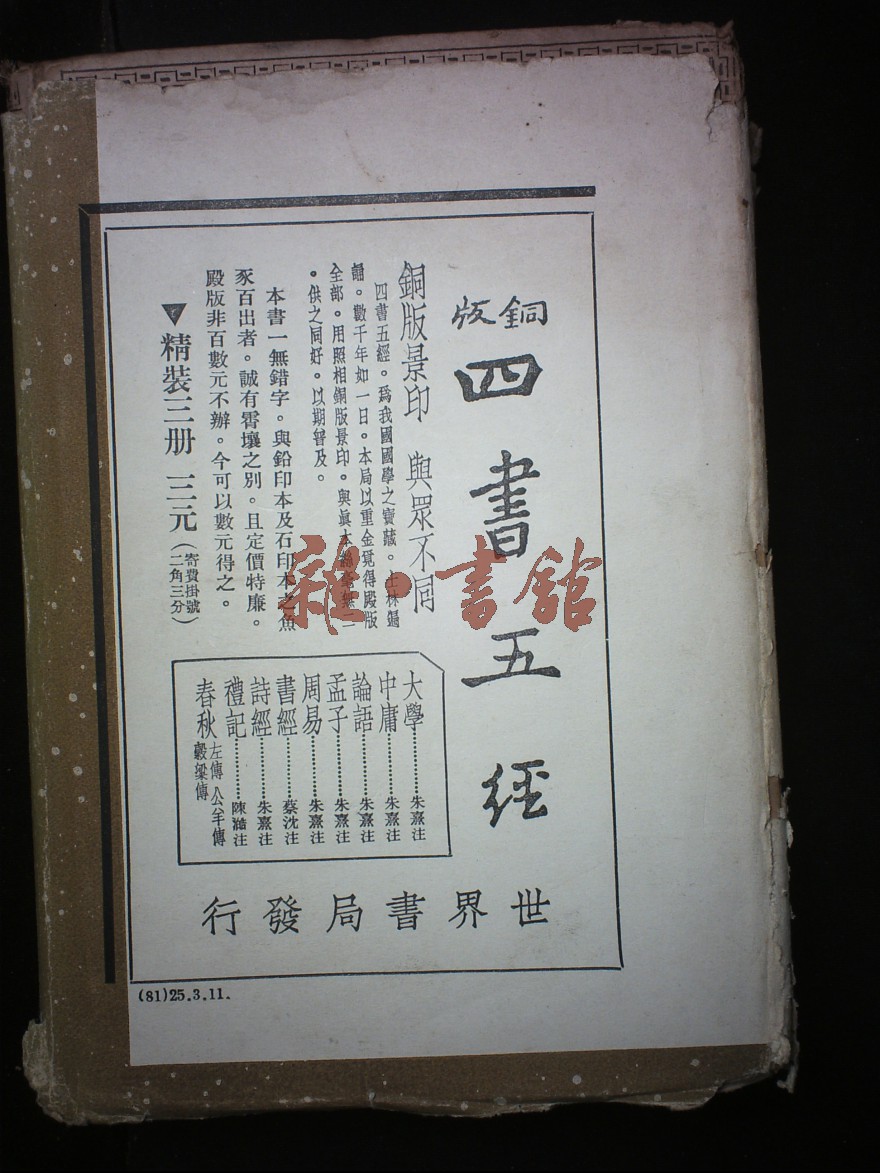 銅版
四書五經
銅版景印 與眾不同
四書五經。爲我國國學之寶藏。士林錫
誦。數千年如一日。本局以重金覓得殿版
全部。用照相銅版景印。與眞本
。供之同好。以期普及。
本書一無錯字。與鉛印本及石印本之魚
豕百出者。誠有霄壤之別。且定價特廉。
殿版非百數元不辦。今可以數元得之。
▼精裝三册 三元(寄費掛號二角三分)
大學…………朱熹注
中庸…………朱熹注
論語…………朱熹注
孟子…………朱熹注
周易…………朱熹注
書經…………蔡沈注
詩經…………朱熹注
禮記…………陳澔注
春秋 左傳 公羊傳 穀梁傳
世界書局發行
(81)25.3.11.
雜·書館